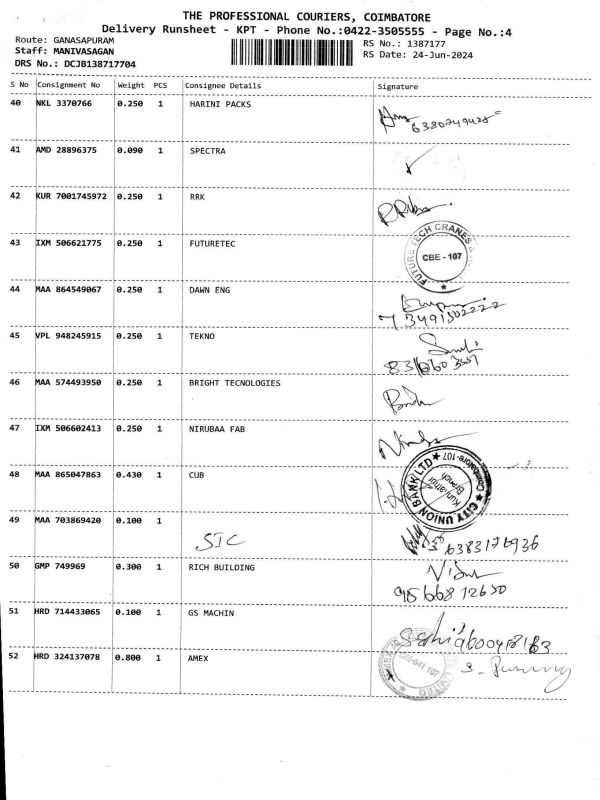 THE PROFESSIONAL COURIERS, COIMBATORE
Delivery Runsheet - KPT - Phone No.:0422-3505555 - Page No.:4
Route: GANASAPURAM
Staff: MANIVASAGAN
DRS No.: DCJB138717704
RS No.: 1387177
RS Date: 24-Jun-2024
S No Consignment No Weight PCS Consignee Details Signature
40 NKL 3370766 0.250 1 HARINI PACKS
41 AMD 28896375 0.090 1 SPECTRA
42 KUR 7001745972 0.250 1 RRK
43 IXM 506621775 0.250 1 FUTURETEC
FUTURE TECH CRANES
CBE - 107
44 MAA 864549067 0.250 1 DAWN ENG
45 VPL 948245915 0.250 1 TEKNO
46 MAA 574493950 0.250 1 BRIGHT TECNOLOGIES
47 IXM 506602413 0.250 1 NIRUBAA FAB
48 MAA 865047863 0.430 1 CUB
CITY UNION BANK LTD
Coimbatore-107
Branch
49 MAA 703869420 0.100 1
SIC
6383176936
50 GMP 749969 0.300 1 RICH BUILDING
9566812650
51 HRD 714433065 0.100 1 GS MACHIN
52 HRD 324137078 0.800 1 AMEX